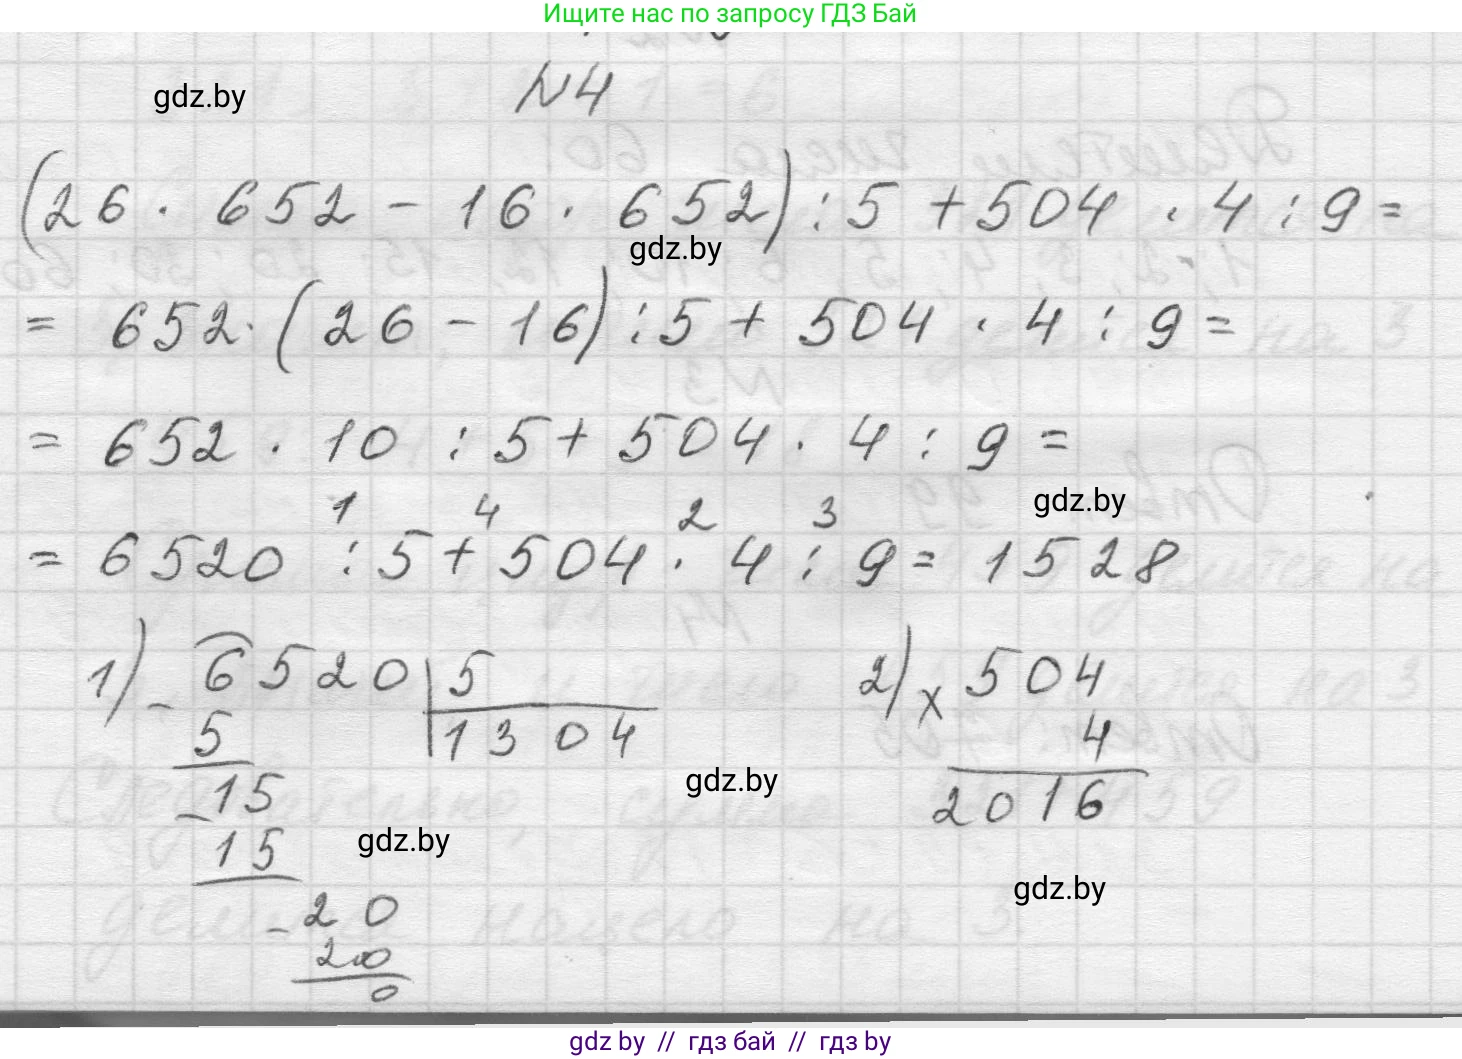 Ищите нас по запросу ГДЗ Бай
N4
gdz.by
(26 · 652 - 16 · 652) : 5 + 504 · 4 : 9 =
gdz.by
= 652 · (26 - 16) : 5 + 504 · 4 : 9 =
= 652 · 10 : 5 + 504 · 4 : 9 =
gdz.by
1 4 2 3
= 6520 : 5 + 504 · 4 : 9 = 1528
1) - 6520 | 5
5 1304
15
- 15
- 20
20
0
2) x 504
4
2016
gdz.by
gdz.by
gdz.by
gdz by // гдз бай // гдз by